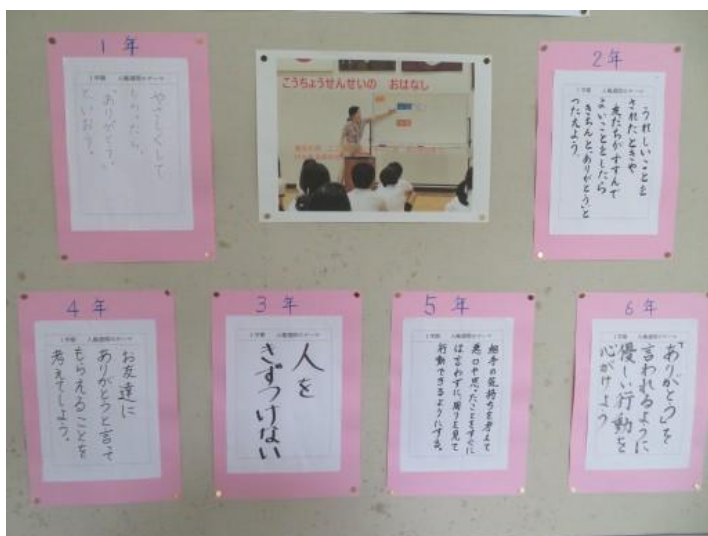 1年
1学期 人権週間のテーマ
やさしくして
もらったら、
「ありがとう」
といおう。
こうちょうせんせいの おはなし
2年
1学期 人権週間のテーマ
うれしいことを
されたときや
友だちがすすんで
よいことをしたら
きちんと、「ありがとう」と
つたえよう。
4年
1学期 人権週間のテーマ
お友達に
ありがとうと言って
もらえることを
考えてしよう。
3年
1学期 人権週間のテーマ
人を
きずつけない
5年
1学期 人権週間のテーマ
相手の気持ちを考えて
悪口や思ったことをすぐに
は言わずに、周りを見て
行動できるようにする。
6年
1学期 人権週間のテーマ
「ありがとう」を
言われるように
優しい行動を
心がけよう